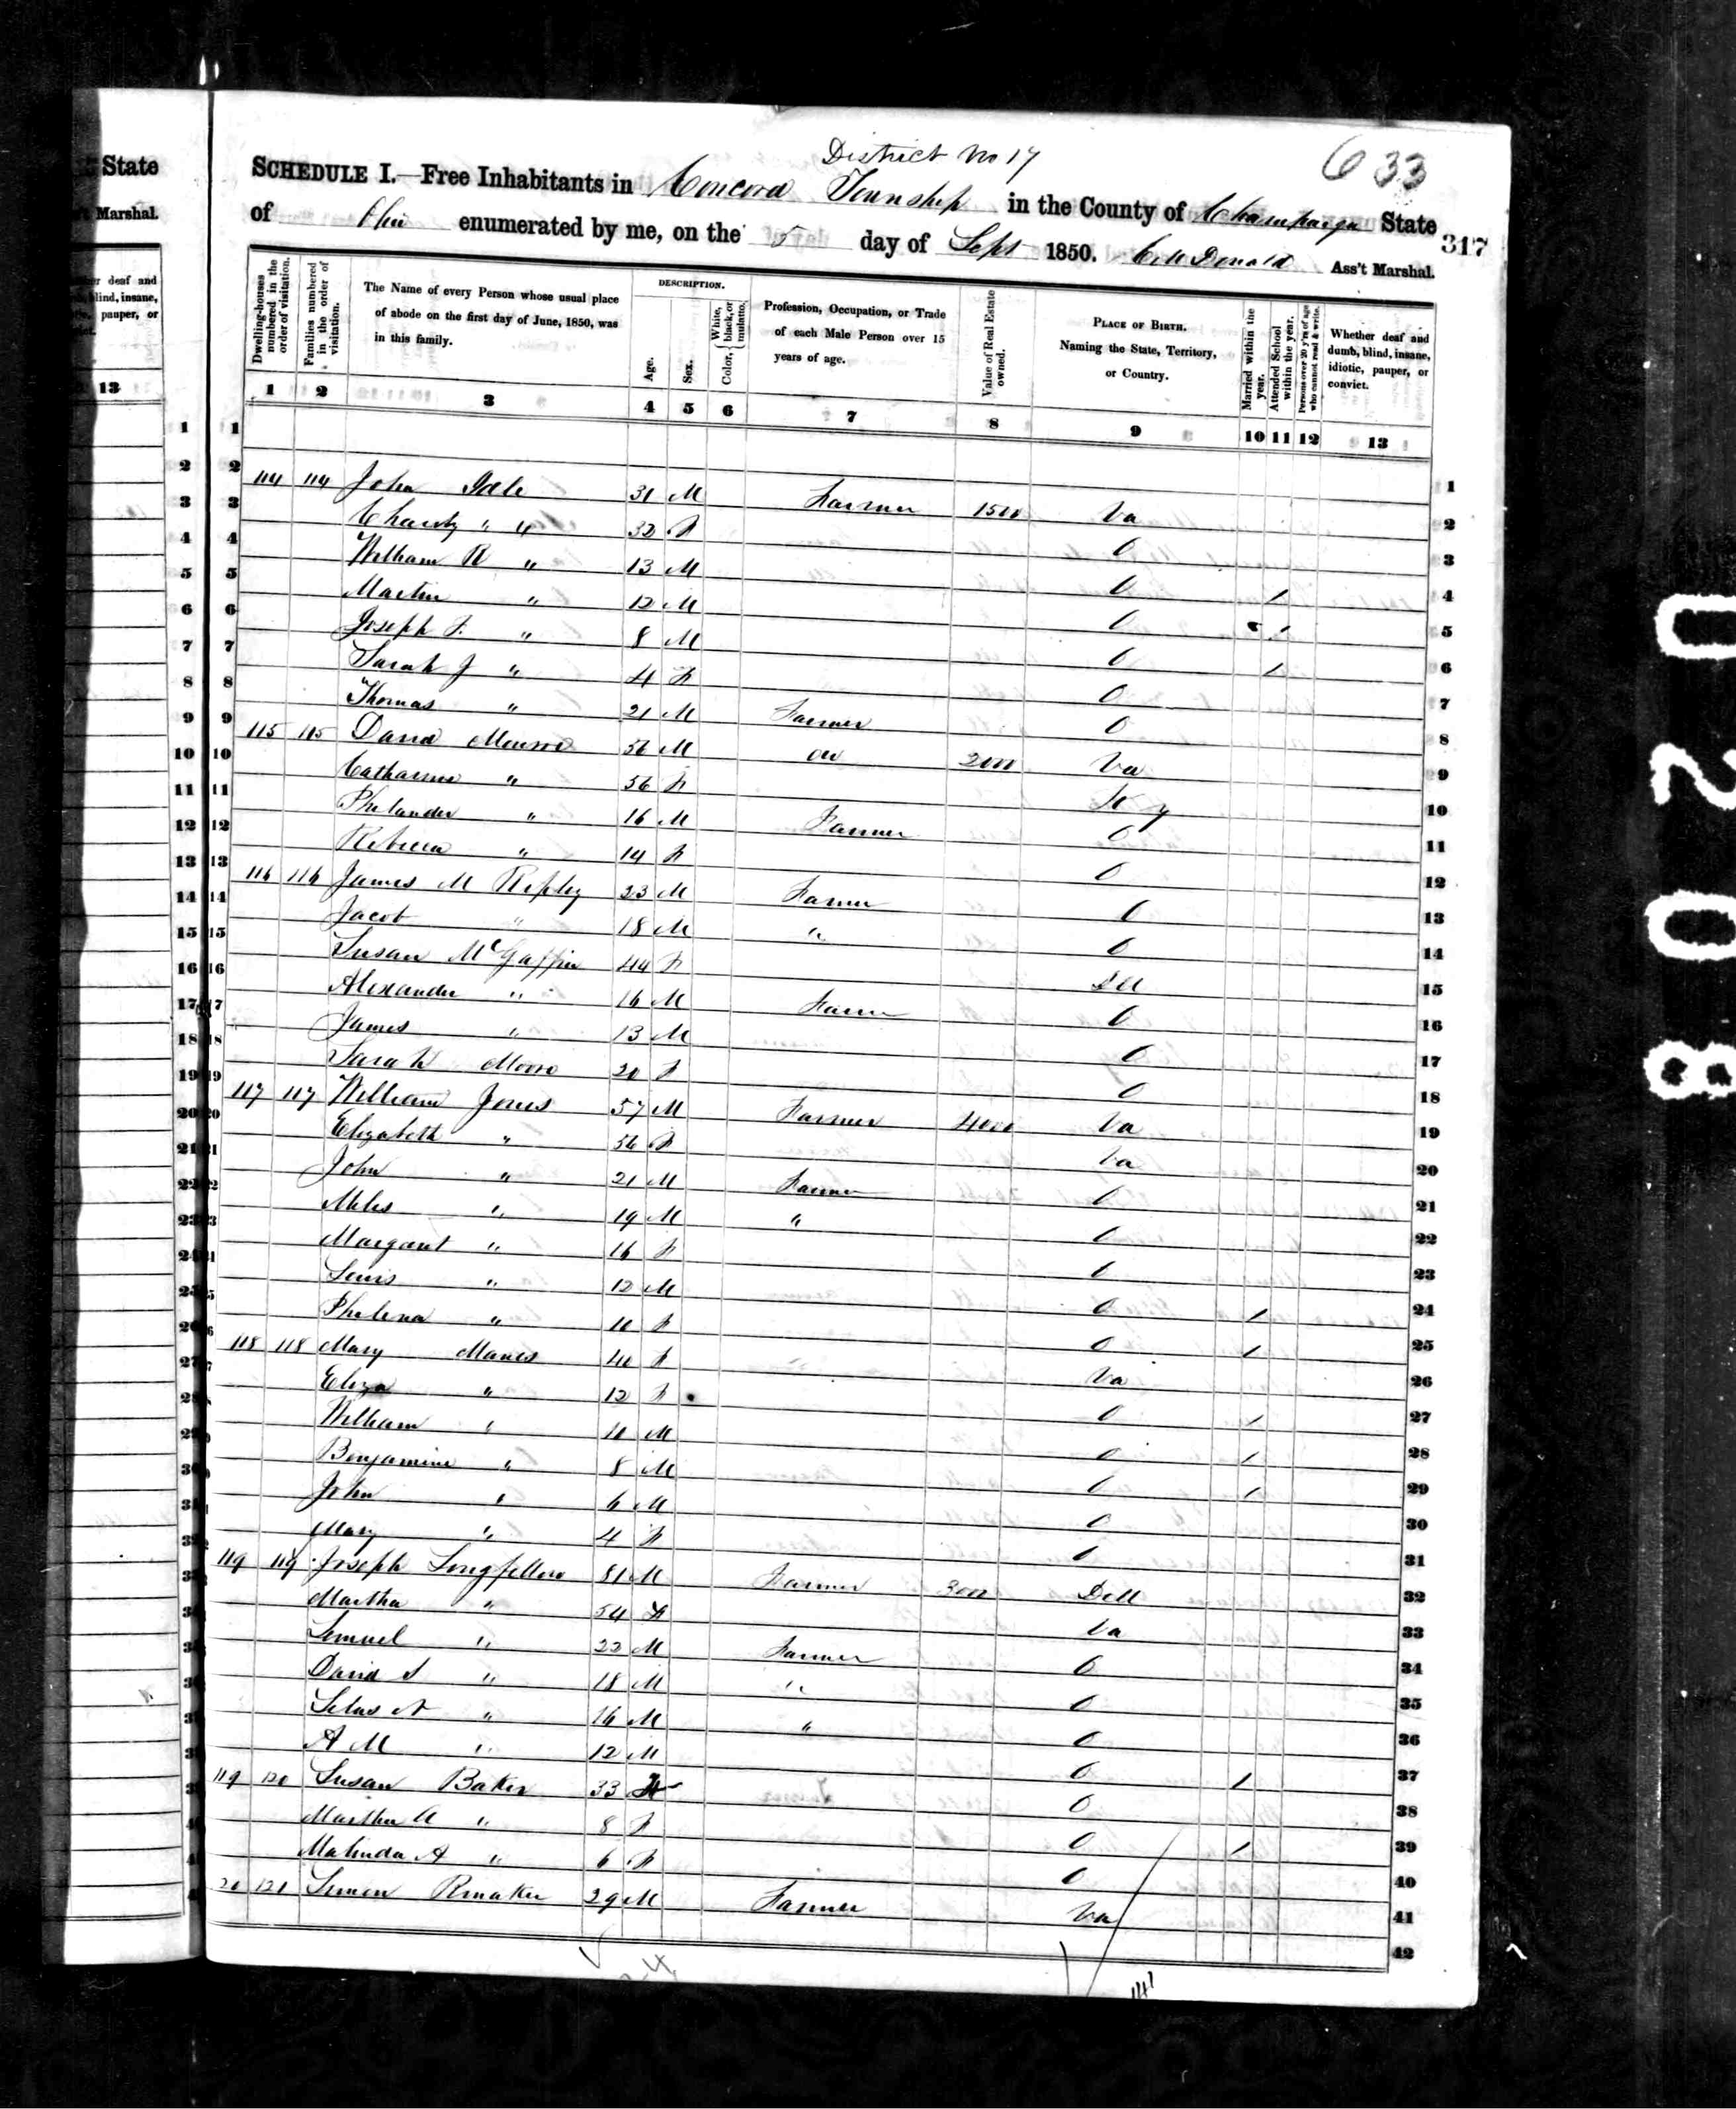 District No 17
633
SCHEDULE I.—Free Inhabitants in Concord Township in the County of Champaign State
of Ohio enumerated by me, on the 5 day of Sept 1850. C McDonald Ass't Marshal.
317
State
Marshal.
deaf and
blind, insane,
pauper, or
13
Dwelling-houses numbered in the order of visitation.
Families numbered in the order of visitation.
The Name of every Person whose usual place of abode on the first day of June, 1850, was in this family.
DESCRIPTION.
Age.
Sex.
Color, { White, black, or mulatto.
Profession, Occupation, or Trade of each Male Person over 15 years of age.
Value of Real Estate owned.
PLACE OF BIRTH. Naming the State, Territory, or Country.
Married within the year.
Attended School within the year.
Persons over 20 y'rs of age who cannot read & write.
Whether deaf and dumb, blind, insane, idiotic, pauper, or convict.
1 2 3 4 5 6 7 8 9 10 11 12 13
1 1
2 114 114 John 31 M Farmer 1500 Va 2
3 Charity " 32 F O 3
4 William R " 13 M O / 4
5 Martin " 12 M O / 5
6 Joseph F. " 8 M O / 6
7 Sarah J " 4 F O 7
8 Thomas " 21 M Farmer O 8
9 115 115 David Monroe 56 M do 2000 Va 9
10 Catharine " 56 F Ky 10
11 Philander " 16 M Farmer O 11
12 Rebecca " 14 F O 12
13 116 116 James M Ripley 23 M Farmer O 13
14 Jacob " 18 M " O 14
15 Susan McGaffin 44 F Dell 15
16 Alexander " 16 M Farmer O 16
17 James " 13 M O 17
18 Sarah Moore 20 F O 18
19 117 117 William Jones 57 M Farmer 4000 Va 19
20 Elizabeth " 56 F Va 20
21 John " 21 M Farmer O 21
22 Miles " 19 M " O 22
23 Margaret " 16 F O 23
24 Lewis " 12 M O / 24
25 Phelena " 10 F O / 25
26 118 118 Mary Manes 40 F Va 26
27 Eliza " 12 F O / 27
28 William " 10 M O / 28
29 Benjamine " 8 M O / 29
30 John " 6 M O 30
31 Mary " 4 F O 31
119 119 Joseph Longfellow 81 M Farmer 3000 Dell 32
Martha " 54 F Va 33
Lemuel " 22 M Farmer O 34
David S " 18 M " O 35
Silas N " 16 M " O 36
A M " 12 M O / 37
119 120 Susan Baker 33 F O 38
Martha A " 8 F O / 39
Malinda A " 6 F O 40
20 121 Simon Rmaker 29 M Farmer Va 41
42
141
0208